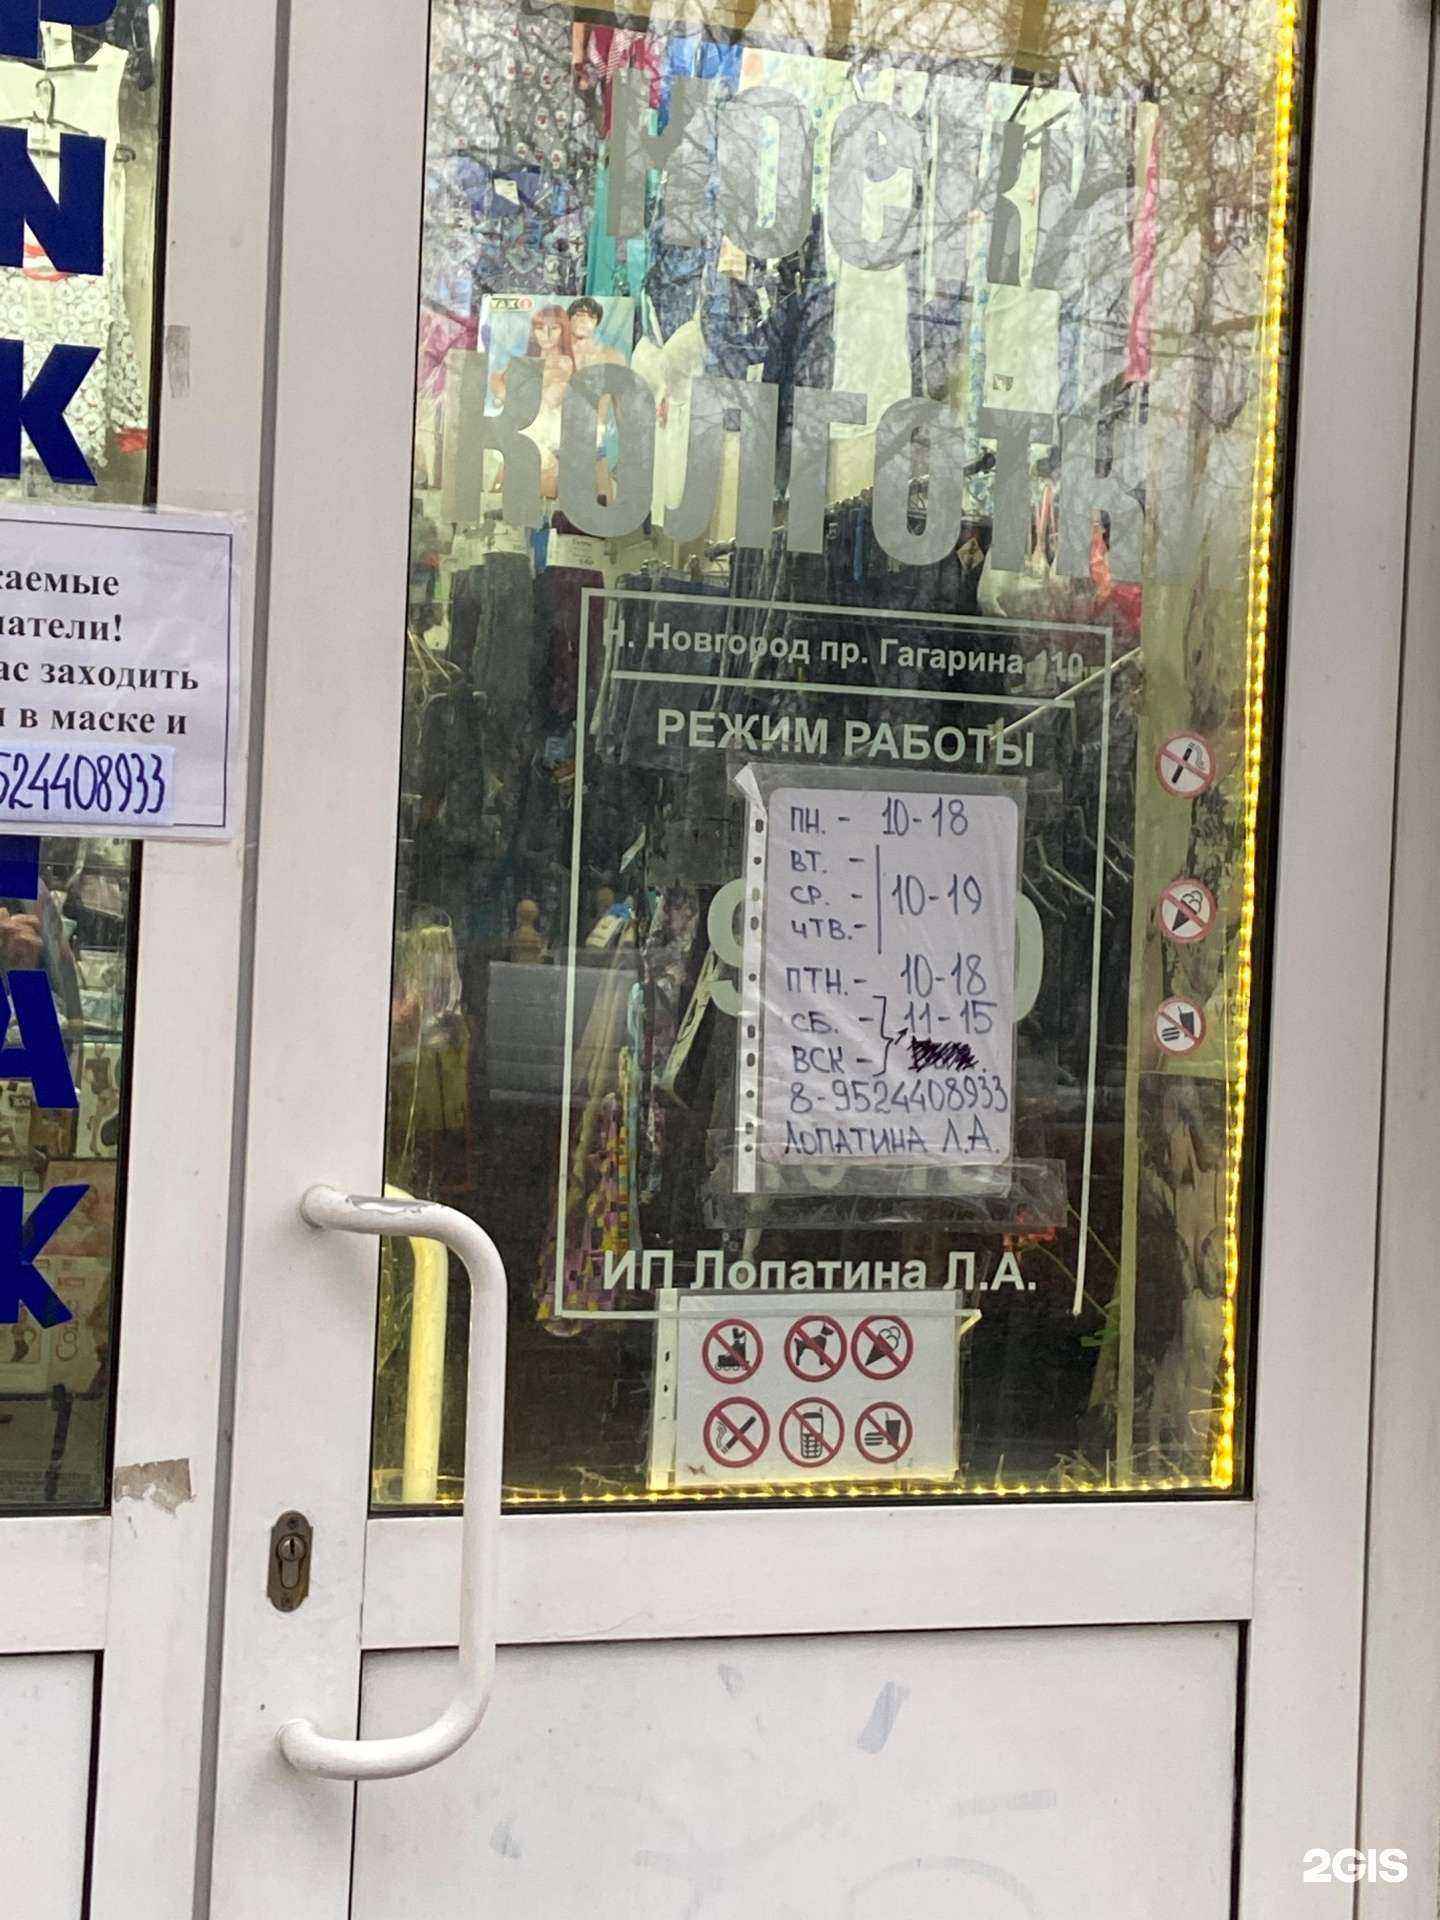 Р
N
К
А
К
каемые
патели!
ас заходить
в маске и
524408933
Носки
КОЛГОТКИ
Н. Новгород пр. Гагарина 110
РЕЖИМ РАБОТЫ
ПН. - 10-18
ВТ. -
СР. - 10-19
ЧТВ.-
ПТН.- 10-18
СБ. - 11-15
ВСК -
8-9524408933
ЛОПАТИНА Л.А.
ИП Лопатина Л.А.
2GIS